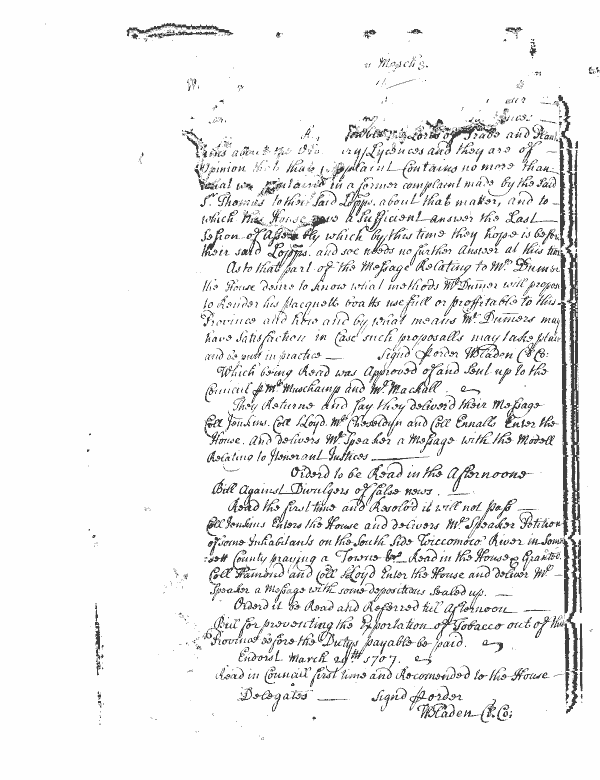 March
and
about the Ordry Lycences and they are of
Opinion that that Complaint Contains no more than
what was Contained in a former complaint made by the Said
Sr. Thomas to their Said Lopps. about that maker, and to
which this House gave a Sufficient answer the Last
Session of Assembly which by this time they hope is before
their said Lopps. and soe needs no further Answer at this
As to that part of the Message Relating to Mr. Dumer
the House desire to know what methods Mr. Dumer will propose
to Render his pacquett boatts usefull or proffitable to this
Province and how and by what means Mr. Dumers may
have Satisfaction in Case such proposalls may take place
and be put in practice — Signd p order W Bladen Cl. Co:
Which being Read was Approved of and Sent up to the
Councill p Mr. Muschamp and Mr. Mackall.
They Returne and Say they deliverd their Message
Coll Jenkins. Coll Lloyd. Mr. Cheseldyn and Coll Ennalls Enter the
House. And delivers Mr. Speaker a Message with the Modell
Relating to Itenerant Justices —
Orderd to be Read in the Afternoone
Bill Against Divulgers of false news. —
Read the first time and Resolvd it will not pass —
Coll Jenkins Enters the House and delivers Mr. Speaker Petition
of some Inhabitants on the South Side Wiccomoco River in Somer
sett County praying a Towne &c. Read in the House & Granted
Coll Hamond and Coll Lloyd Enter the House and deliver Mr.
Speaker a Message with some depositions Sealed up. —
Orderd it be Read and Referred till Afternoon —
Bill for preventing the Exportation of Tobacco out of this
Province before the Dutys payable be paid.
Endorst March 29th 1707.
Read in Councill first time and Recomended to the House
Delegates — Signd p order
W Bladen Cl. Co: